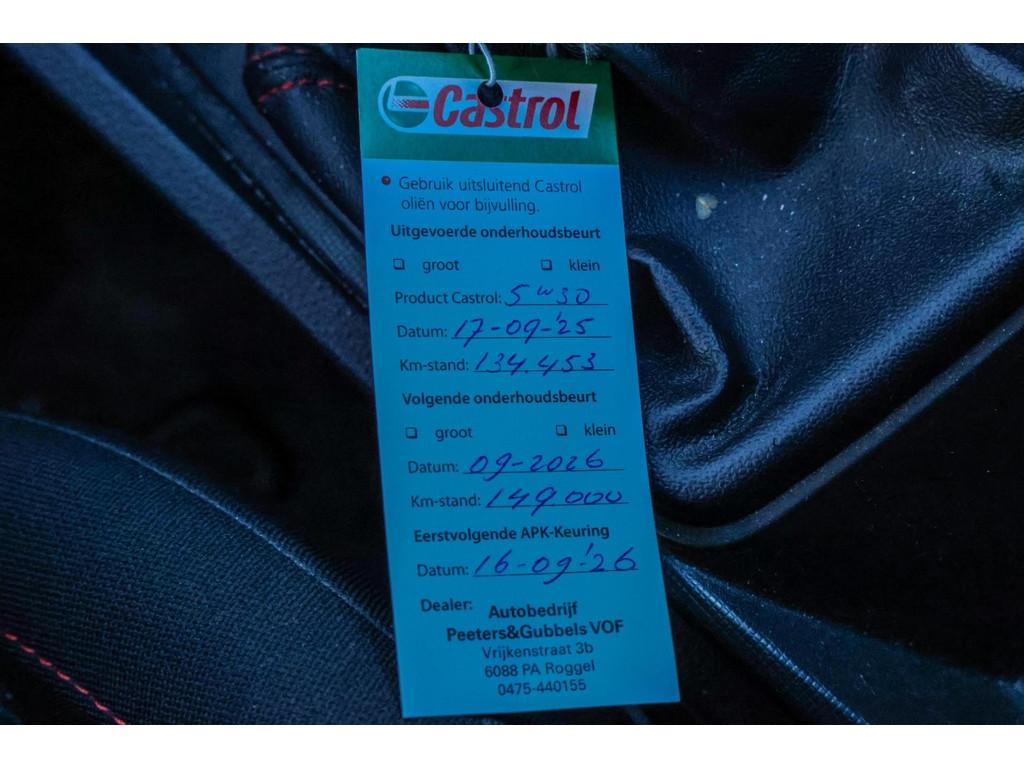 Castrol
Gebruik uitsluitend Castrol
oliën voor bijvulling.
Uitgevoerde onderhoudsbeurt
groot klein
Product Castrol: 5w30
Datum: 17-09-'25
Km-stand: 134.453
Volgende onderhoudsbeurt
groot klein
Datum: 09-2026
Km-stand: 149.000
Eerstvolgende APK-Keuring
Datum: 16-09-'26
Dealer: Autobedrijf
Peeters&Gubbels VOF
Vrijkenstraat 3b
6088 PA Roggel
0475-440155